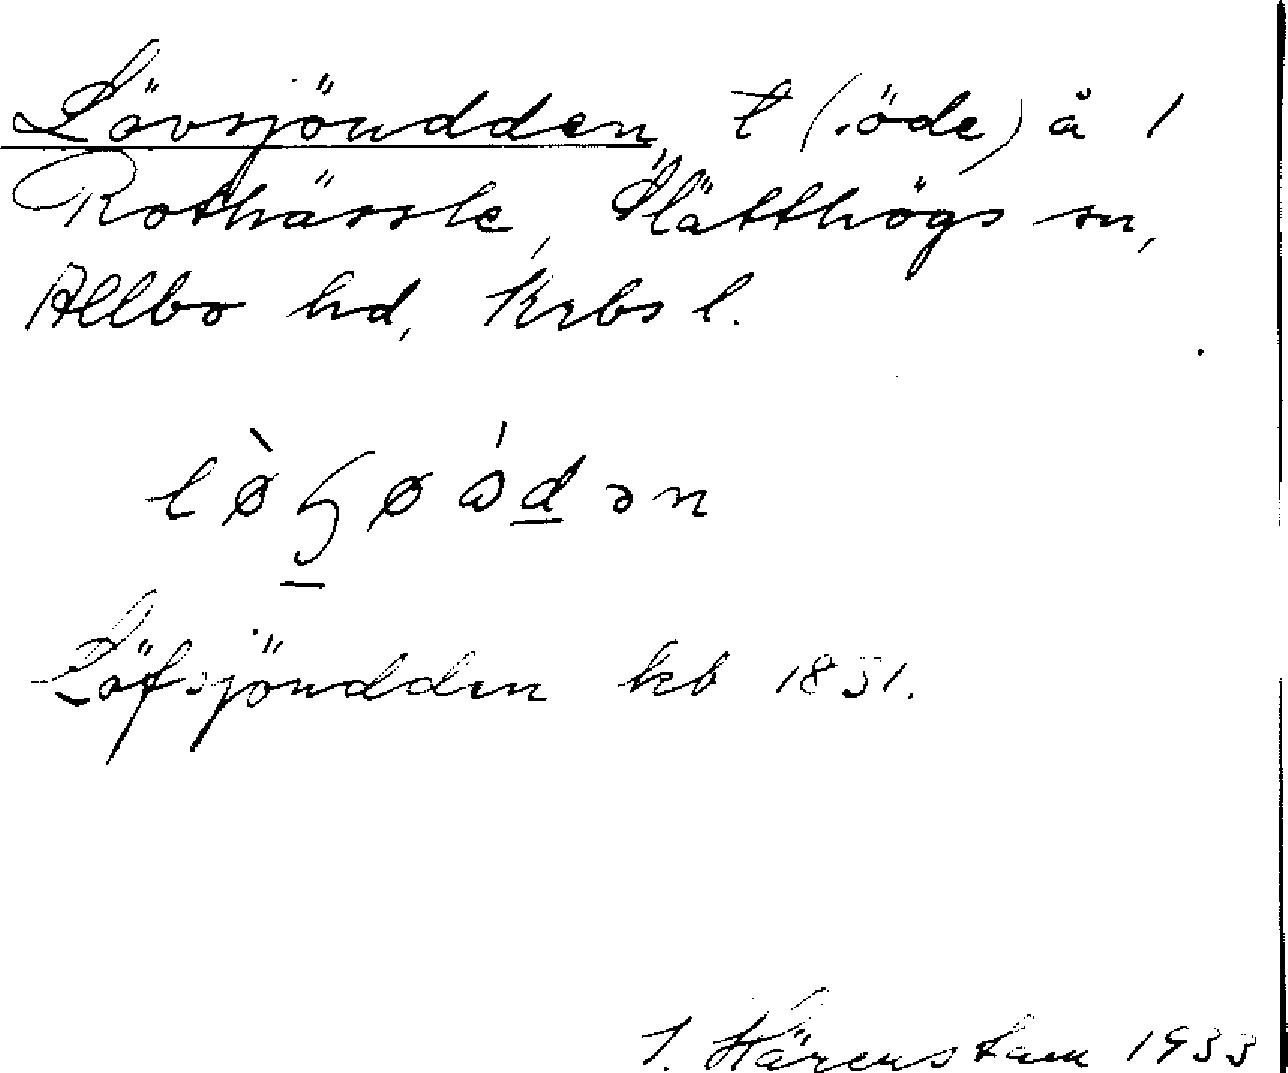 Lövsjöudden, t (öde) å 1
Rothässle, Slätthögs sn,
Allbo hd, Krbs l.
lø̀ɧøǿdən
Löfsjöudden kb 1851.
J. Härenstam 1933